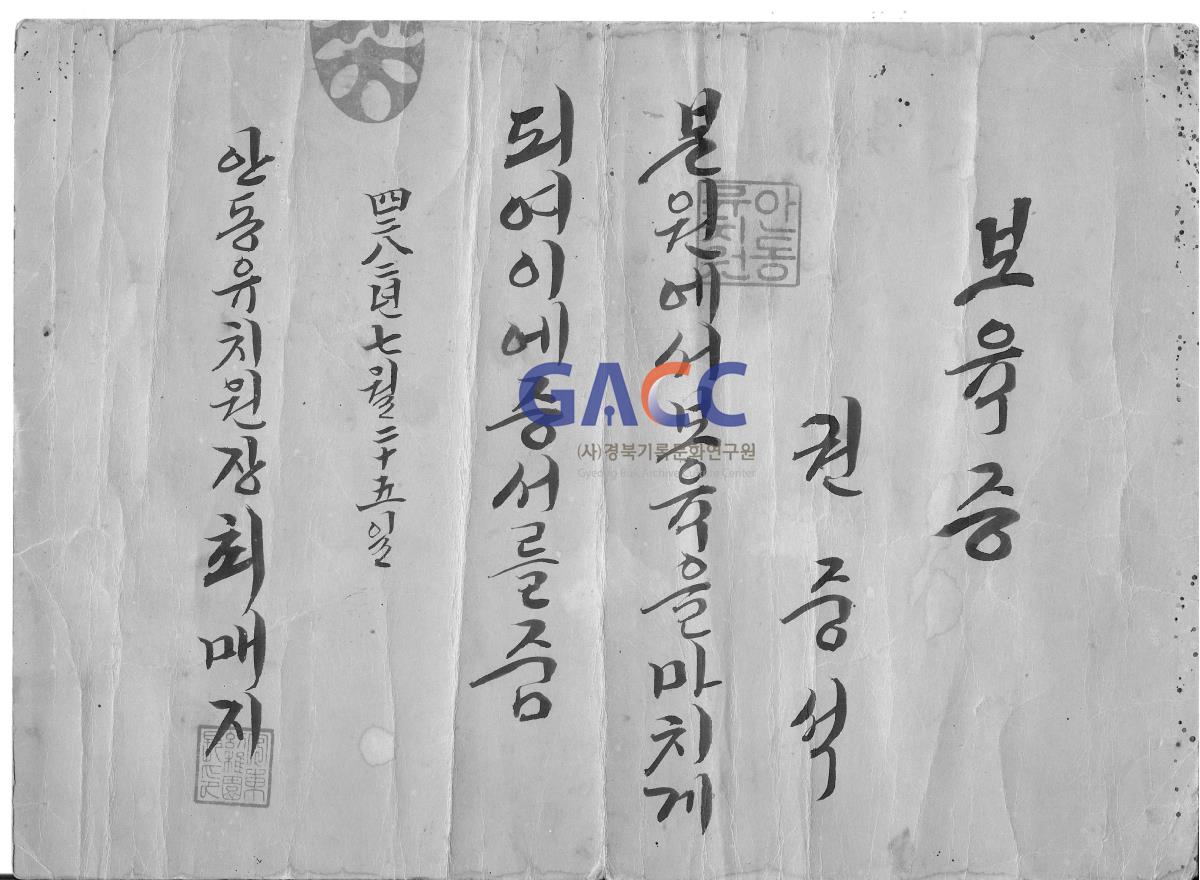 보육증
권중석
안동
류치원
본원에서보육을마치게
되여이에증서를줌
四二八二년七월二十五일
안동유치원장최매지
GACC
(사)경북기록문화연구원
Gyeong Buk Archives Culture Center